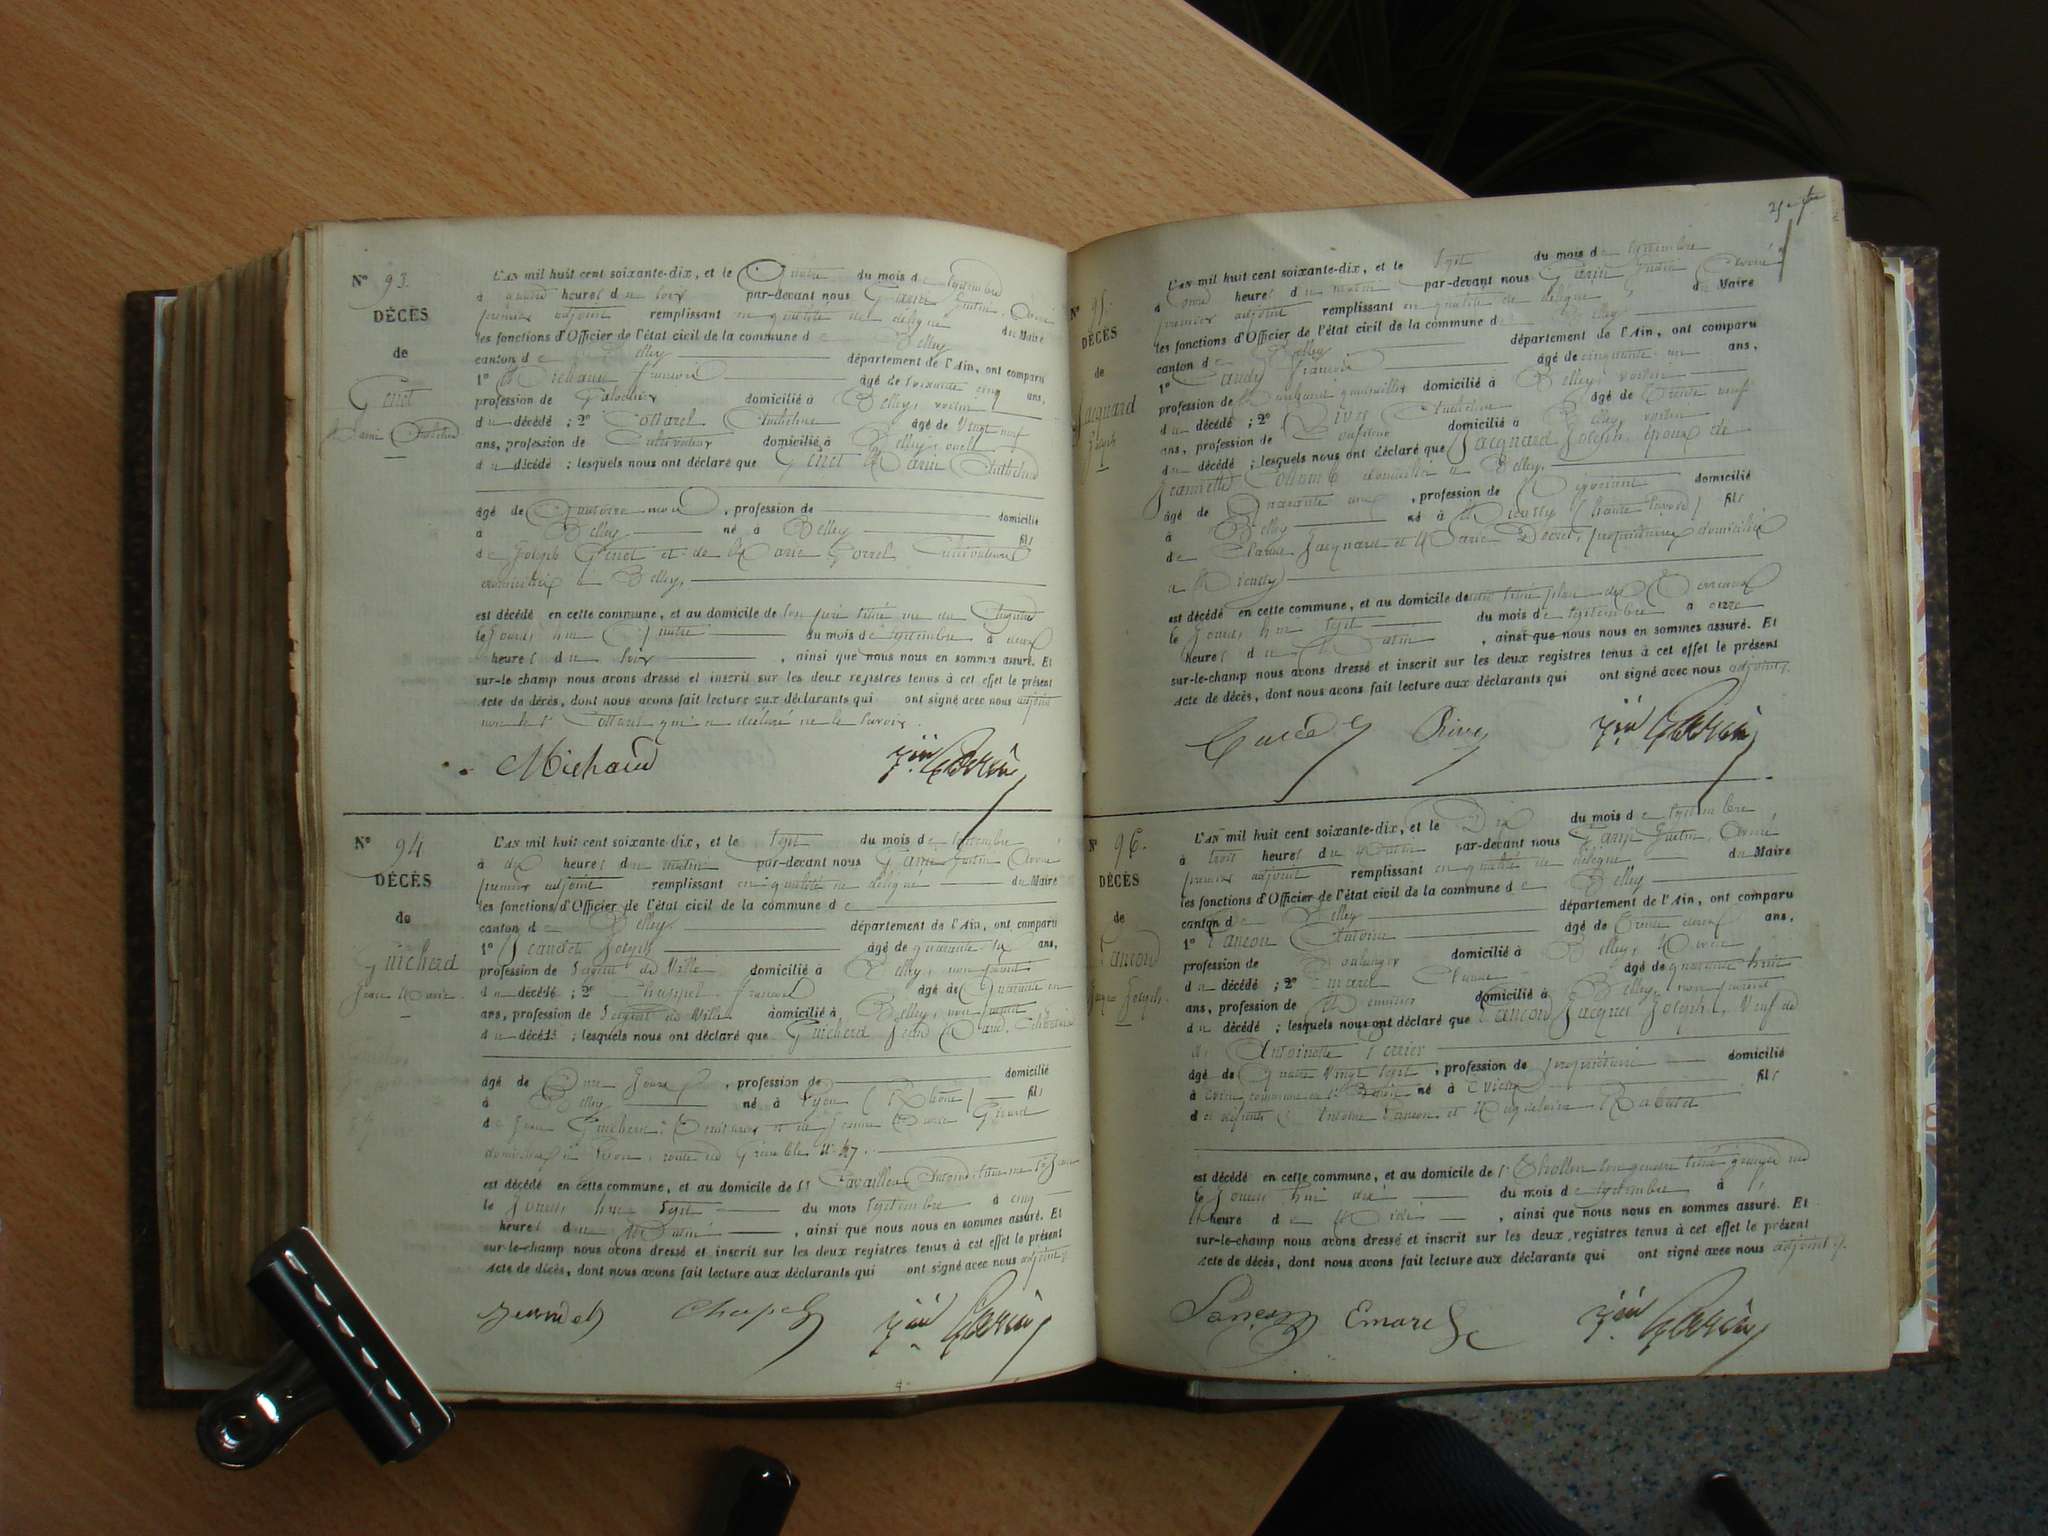 Nº 93.
DÉCÈS
de
Genet
Marie Anthelme
L'AN mil huit cent soixante-dix, et le Quatre du mois de Septembre
à quatre heures du soir par-devant nous Garin Justin, Aimé
premier adjoint remplissant en qualité de délégué du Maire
les fonctions d'Officier de l'état civil de la commune de Belley
canton de Belley département de l'Ain, ont comparu
1º Michaud François âgé de soixante cinq ans,
profession de Galochier domicilié à Belley, voisin
du décédé ; 2º Cottarel Anthelme âgé de Vingt neuf
ans, profession de Cultivateur domicilié à Belley, oncle
du décédé ; lesquels nous ont déclaré que Genet Marie Anthelme
âgé de Quatorze mois, profession de domicilié
à Belley né à Belley fils
de Joseph Genet et de Marie Cultivateurs
domiciliés à Belley.
est décédé en cette commune, et au domicile de son père situé rue du
le Jourd'hui Quatre du mois de Septembre à deux
heures du soir, ainsi que nous nous en sommes assuré. Et
sur-le champ nous avons dressé et inscrit sur les deux registres tenus à cet effet le présent
Acte de décès, dont nous avons fait lecture aux déclarants qui ont signé avec nous adjoint
non le Sr Cottarel qui a déclaré ne le savoir.
Michaud Jin Garin
Nº 94
DÉCÈS
de
Guicherd
Jean Marie.
L'AN mil huit cent soixante-dix, et le Sept du mois de Septembre
à dix heures du matin par-devant nous Garin Justin Aimé
premier adjoint remplissant en qualité de délégué du Maire
les fonctions d'Officier de l'état civil de la commune de
canton de Belley. département de l'Ain, ont comparu
1º Jeandet Joseph âgé de quarante six ans,
profession de Sergent de Ville domicilié à Belley, non parent
du décédé ; 2º Chappel François âgé de Quarante un
ans, profession de Sergent de Ville domicilié à Belley, non parent
du décédé ; lesquels nous ont déclaré que Guicherd Jean
âgé de Jours, profession de domicilié
à Belley né à Lyon (Rhône) fils
de Jean Guicherd et de Jeanne Marie
domiciliés à Lyon, route de Grenoble Nº 47.
est décédé en cette commune, et au domicile de Sr
le Jourd'hui Sept du mois Septembre à cinq
heures du Matin, ainsi que nous nous en sommes assuré. Et
sur-le-champ nous avons dressé et inscrit sur les deux registres tenus à cet effet le présent
Acte de décès, dont nous avons fait lecture aux déclarants qui ont signé avec nous adjoint.
Jeandet Chapel Jin Garin
Nº 95.
DÉCÈS
de
Jacquard
Joseph
L'AN mil huit cent soixante-dix, et le Sept du mois de Septembre
à Onze heures du matin par-devant nous Garin Justin Aimé
premier adjoint remplissant en qualité de délégué du Maire
les fonctions d'Officier de l'état civil de la commune de Belley
canton de Belley département de l'Ain, ont comparu
1º François âgé de cinquante un ans,
profession de Marchand quincaillier domicilié à Belley, voisin
du décédé ; 2º Rive Anthelme âgé de Trente neuf
ans, profession de Confiseur domicilié à Belley, voisin
du décédé ; lesquels nous ont déclaré que Jacquard Joseph, époux de
Jeannette domicilié à Belley.
âgé de Soixante ans, profession de Négociant domicilié
à Belley né à Mieussy (haute Savoie) fils
de Claude Jacquard et Marie propriétaires domiciliés
à Mieussy
est décédé en cette commune, et au domicile de
le Jourd'hui Sept du mois de Septembre à onze
heures du Matin, ainsi que nous nous en sommes assuré. Et
sur-le-champ nous avons dressé et inscrit sur les deux registres tenus à cet effet le présent
Acte de décès, dont nous avons fait lecture aux déclarants qui ont signé avec nous adjoint.
Rive Jin Garin
Nº 96.
DÉCÈS
de
Lançon
Jacques Joseph.
L'AN mil huit cent soixante-dix, et le Dix du mois de Septembre
à trois heures du par-devant nous Garin Justin, Aimé
premier adjoint remplissant en qualité de délégué du Maire
les fonctions d'Officier de l'état civil de la commune de Belley
canton de Belley département de l'Ain, ont comparu
1º Lançon Antoine âgé de Trente deux ans,
profession de Boulanger domicilié à Belley,
du décédé ; 2º Emarel Claude âgé de quarante huit
ans, profession de Menuisier domicilié à Belley, non parent
du décédé ; lesquels nous ont déclaré que Lançon Jacques Joseph, Veuf de
Antoinette
âgé de Quatre Vingt Sept, profession de propriétaire domicilié
à né à fils
de défunts Antoine Lançon et
est décédé en cette commune, et au domicile de Sr son gendre
le Jourd'hui dix du mois de Septembre à
heure de Midi, ainsi que nous nous en sommes assuré. Et
sur-le-champ nous avons dressé et inscrit sur les deux registres tenus à cet effet le présent
Acte de décès, dont nous avons fait lecture aux déclarants qui ont signé avec nous adjoint.
Lançon Emarel Jin Garin